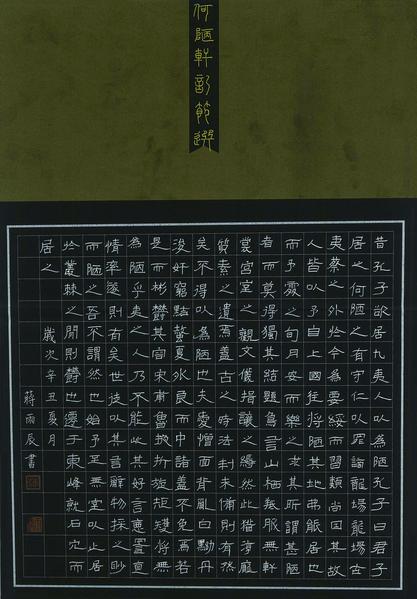 何陋軒記節選
昔孔子欲居九夷人以為陋孔子曰君子
居之何陋之有守仁以罪謫龍場龍場古
夷蔡之外於今為要綏而習類尚因其故
人皆以予自上國往將陋其地弗能居也
而予處之旬月安而樂之求其所謂甚陋
者而莫得獨其結題鳥言山棲羝服無軒
裳宮室之觀文儀揖讓之縟然此猶淳龐
質素之遺焉蓋古之時法制未備則有然
矣不得以為陋也夫愛憎面背亂白黝丹
浚奸窮黠螫夏外良而中諸蓋不免焉若
是而彬鬱其容宋甫魯掖折旋矩矱將無
為陋乎夷之人乃不能此其好言惡詈直
情率遂則有矣世徒以其言辭物采之眇
而陋之吾不謂然也始予至無室以止居
於叢棘之間則鬱也遷于東峰就石穴而
居之 歲次辛丑夏月
蔣雨辰書